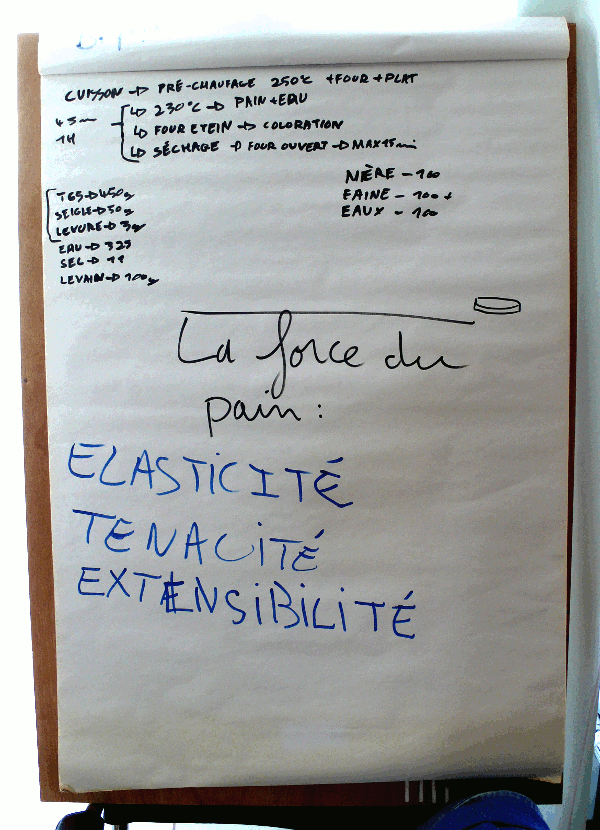 CUISSON → PRÉ-CHAUFAGE 250°C +FOUR+PLAT
45m
1H
↳ 230°C → PAIN+EAU
↳ FOUR ETEIN → COLORATION
↳ SÉCHAGE → FOUR OUVERT → MAX 15mi
MÈRE - 100
FAINE - 100+
EAUX - 100
T65→450g
SEIGLE→50g
LEVURE→3g
EAU→325
SEL→11
LEVAIN→100g
La force du
pain :
ELASTICITÉ
TENACITÉ
EXTENSIBILITÉ